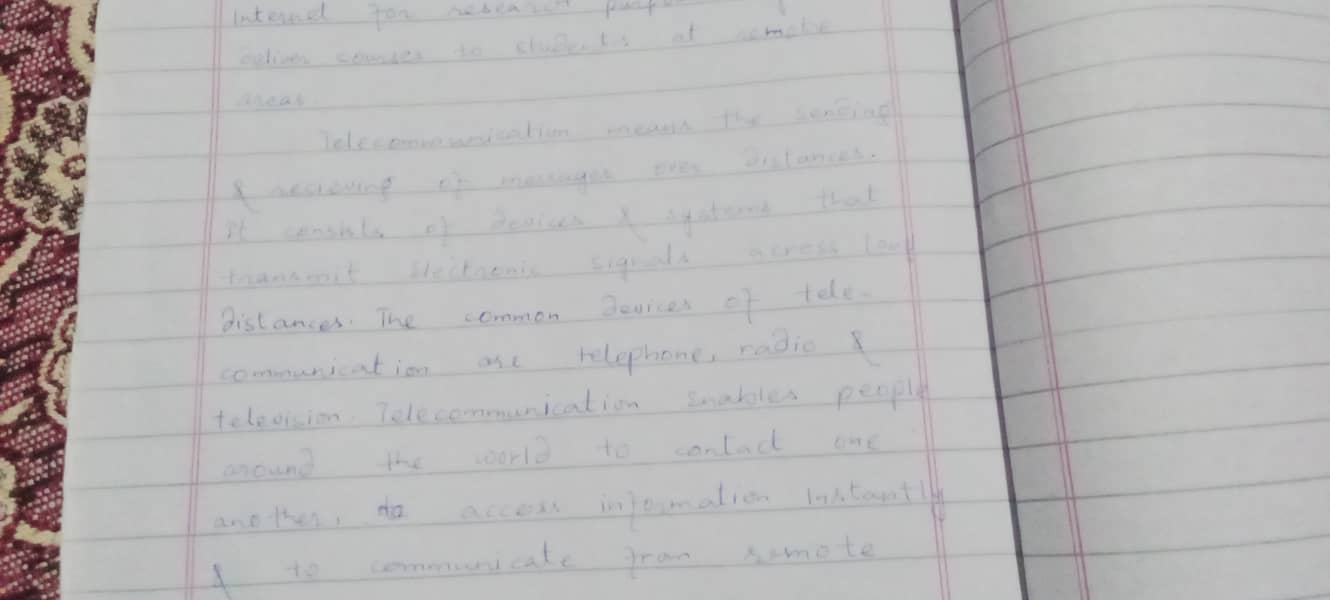 Internet for research purp
deliver courses to students at remote
areas
Telecommunication means the sending
& recieving of messages over distances.
It consists of devices & systems that
transmit electronic signals across long
distances. The common devices of tele-
communication are telephone, radio &
television. Telecommunication enables people
around the world to contact one
another, to access information instantly
& to communicate from remote